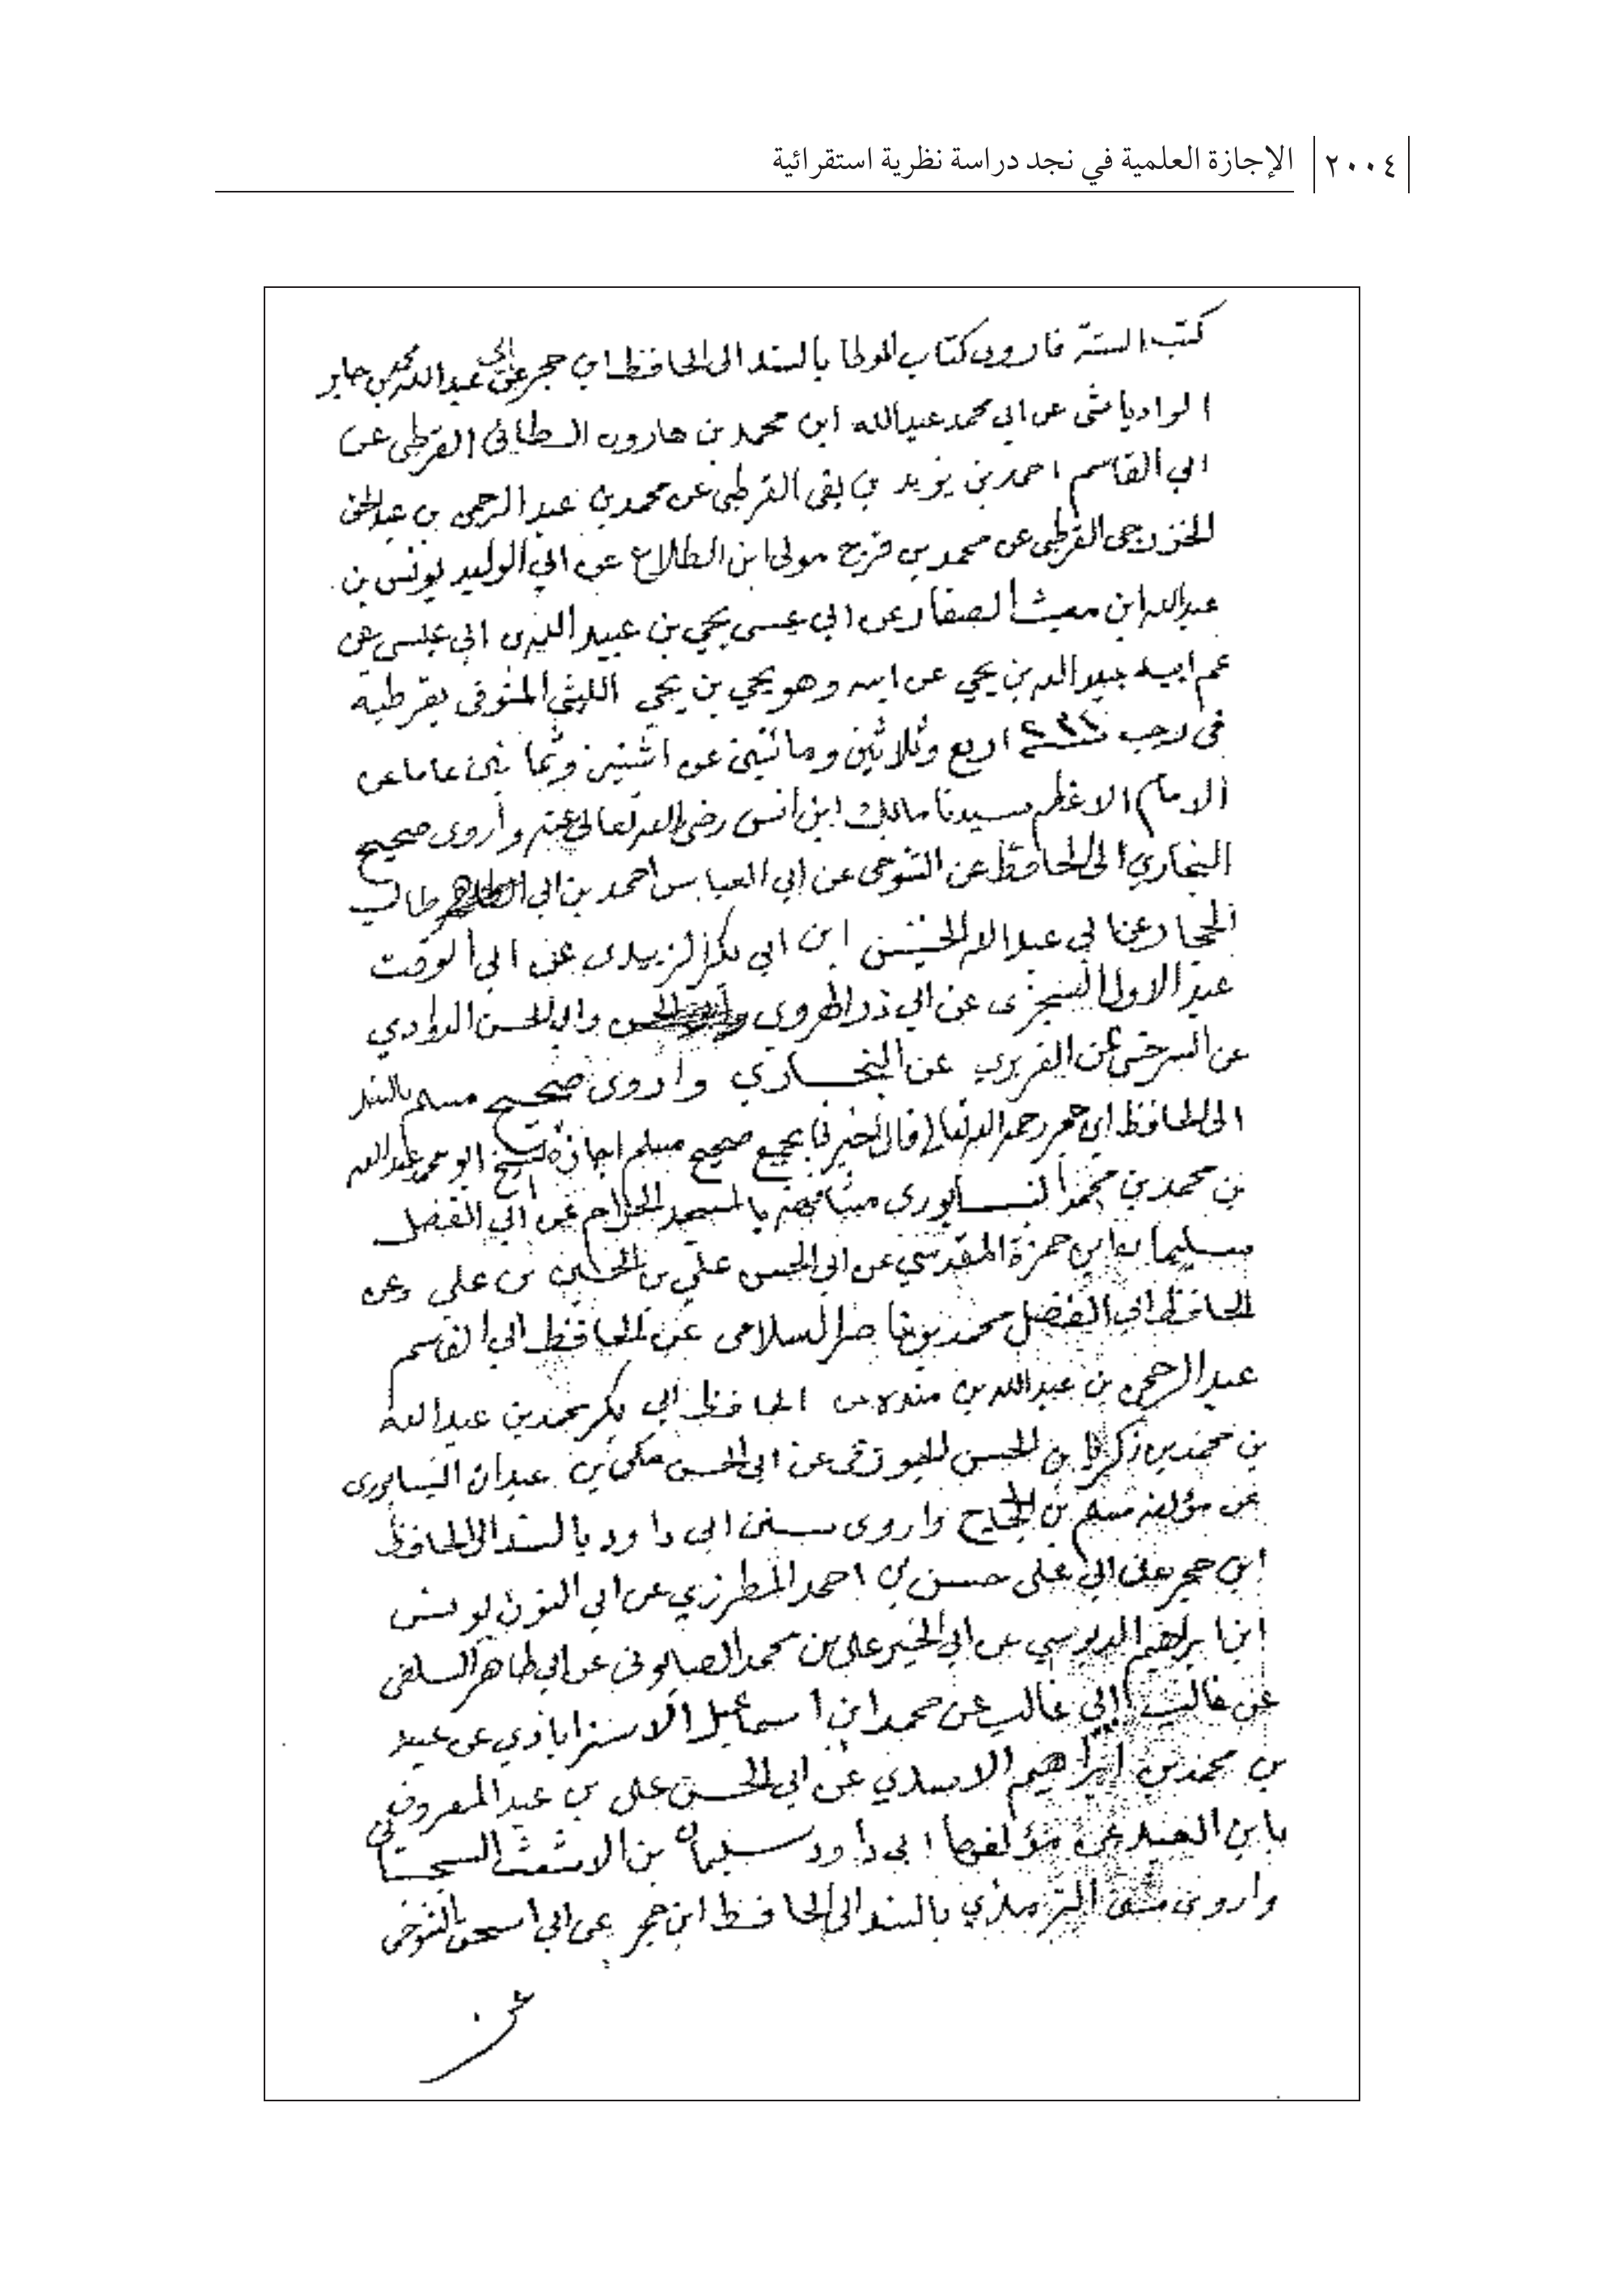 ٢٠٠٤ الإجازة العلمية في نجد دراسة نظرية استقرائية
كتب الستة فاروي كتاب الموطا بالسند الى الحافظ ابن حجر عن ابي عبد الله محمد بن جابر
الوادياشى عن ابي محمد عبد الله ابن محمد بن هارون الطائى القرطبى عن
ابي القاسم احمد بن يزيد بن بقى القرطبى عن محمد بن عبد الرحمن بن عبد الحق
الخزرجى القرطبى عن محمد بن فرج مولى ابن الطلاع عن ابي الوليد يونس بن
عبد الله ابن مغيث الصفار عن ابي عيسى يحيي بن عبيد الله بن ابي عيسى عن
عم ابيه عبيد الله بن يحيي عن ابيه وهو يحيي بن يحيي الليثى المتوفى بقرطبة
فى رجب اربع وثلاثين ومائتين عن اثنتين وثمانين عاما عن
الامام الاعظم سيدنا مالك ابن انس رضى الله تعالى عنه واروى صحيح
البخاري الى الحافظ عن التنوخى عن ابي العباس احمد بن ابي طالب
الحجار عن ابي عبد الله الحسين ابن ابي بكر الزبيدى عن ابي الوقت
عبد الاول السجزى عن ابي ذر الهروى وابي الحسن الداؤدي
عن السرخسى عن الفربري عن البخاري واروى صحيح مسلم بالسند
الى الحافظ ابن حجر رحمه الله تعالى قال اخبرنا بجميع صحيح مسلم اجازة الشيخ ابو محمد عبد الله
بن محمد بن محمد النسابورى مشافهة بالمسجد الحرام عن ابي الفضل
سليمان ابن حمزة المقدسي عن ابي الحسن علي بن الحسين بن علي عن
الحافظ ابي الفضل محمد بن ناصر السلامى عن الحافظ ابي القاسم
عبد الرحمن بن عبد الله بن منده عن الحافظ ابي بكر محمد بن عبد الله
بن محمد بن زكريا بن الحسن الجوزقى عن ابي الحسن مكى بن عبدان النيسابورى
عن مؤلفه مسلم بن الحجاج واروى سنن ابي داود بالسند الى الحافظ
ابن حجر عن ابي على حسن بن احمد المطرزي عن ابي النون يونس
ابن ابراهيم الدبوسي عن ابي الخير على بن محمد الصابونى عن ابي طاهر السلفى
عن غالب ابي غالب عن محمد ابن اسماعيل الاسترابادي عن عبيد
بن محمد بن ابراهيم الاسدي عن ابي الحسن على بن عبد المعروف
بابن العبد عن مؤلفها ابي داود سليمان بن الاشعث السجستاني
واروى سنن الترمذي بالسند الى الحافظ ابن حجر عن ابي اسحق التنوخى
عن